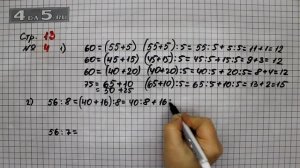 4·5
RS
Стр. 13
№ 4 1) 60 = (55+5) (55+5):5 = 55:5+5:5 = 11+1 = 12
60 = (45+15) (45+15):5 = 45:5+15:5 = 9+3 = 12
60 = (40+20) (40+20):5 = 40:5+20:5 = 8+4 = 12
75 = 65+10 (65+10):5 = 65:5+10:5 = 13+2 = 15
= 50+25
2) 56:8 = (40+16):8 = 40:8+16
56:7 =